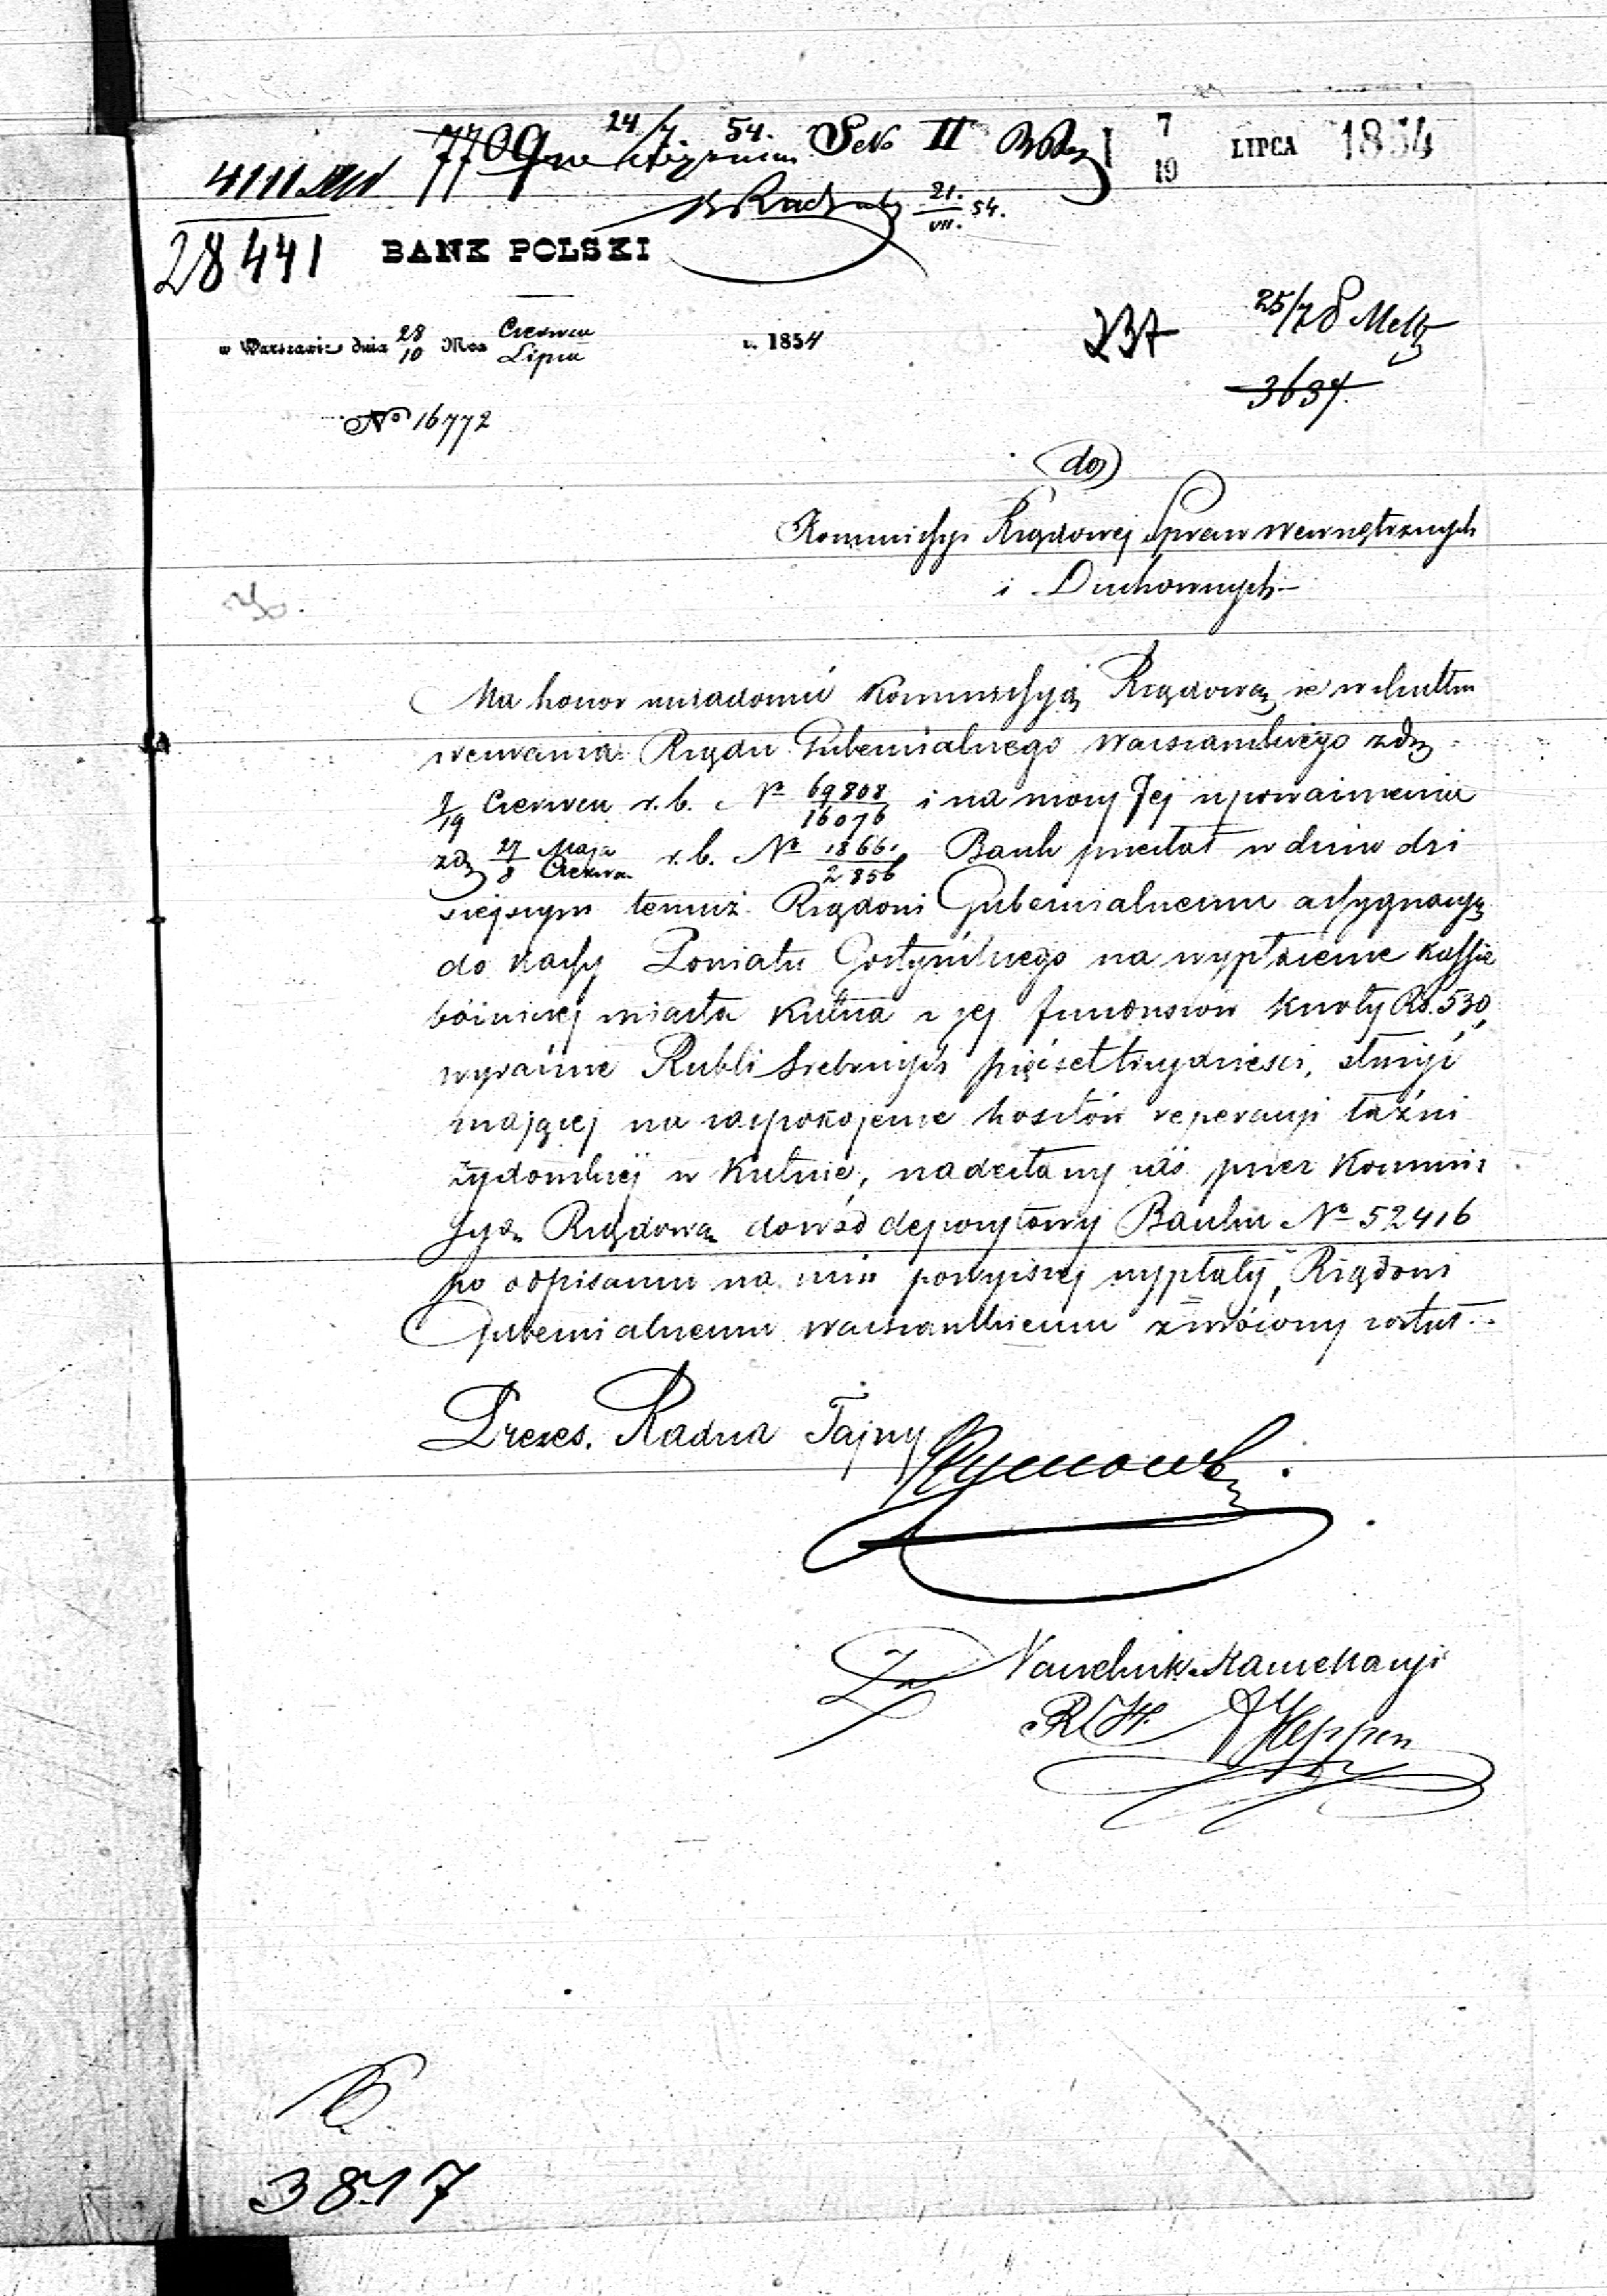 7709 24/7 54. Sek II
7/19 LIPCA 1854
21./VII. 54.
28441
BANK POLSKI
w Warszawie dnia 28/10 Mca Czerwca/Lipca r. 1854
237
25/7
3637.
No 16772
do
Kommissyi Rządowej Spraw Wewnętrznych
i Duchownych
Ma honor uwiadomić Kommissyją Rządową że w skutku
wezwania Rządu Gubernialnego Warszawskiego z d.
7/19 Czerwca r. b. No 69808/16076 i na mocy Jej upoważnienia
z d. 27 Maja/8 Czerwca r. b. No 18661/2856 Bank przesłał w dniu dzi
siejszym temuż Rządowi Gubernialnemu assygnacyą
do kassy Powiatu Gostyńskiego na wypłacenie kassie
bóżniczej miasta Kutna z jej funduszów kwoty Rs. 530
wyraźnie Rubli Srebrnych pięćset trzydzieści, służyć
mającej na zaspokojenie kosztów reperacyi łaźni
żydowskiej w Kutnie, nadesłany zaś przez Kommis
syą Rządową dowód depozytowy Banku No 52416
po odpisaniu na nim powyższej wypłaty, Rządowi
Gubernialnemu Warszawskiemu zwrócony został.
Prezes, Radca Tajny
Za Naczelnik Kancellaryi
Heppen
3817